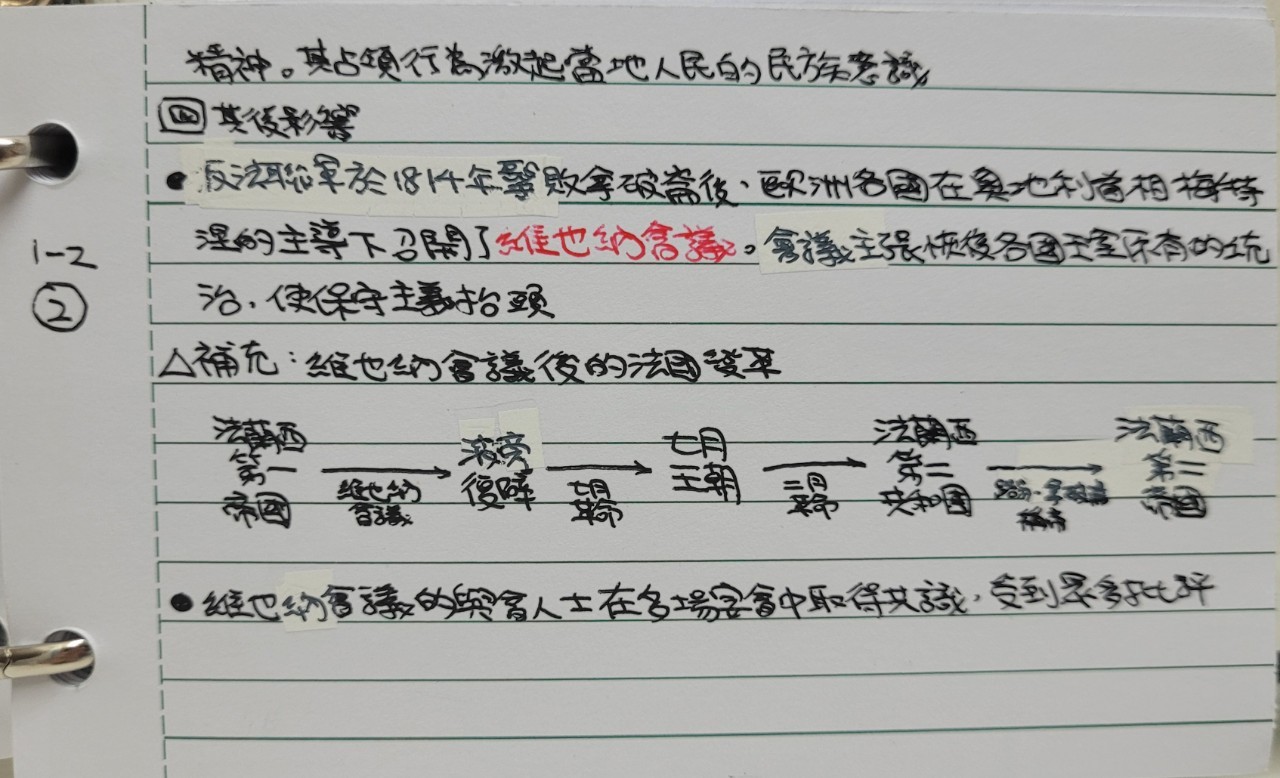 精神。其占領行為激起當地人民的民族意識
四 其後影響
• 反法聯軍於1814年擊敗拿破崙後、歐洲各國在奧地利首相梅特
1-2
②
涅的主導下召開了維也納會議。會議主張恢復各國王室原有的統
治,使保守主義抬頭
△補充:維也納會議後的法國發革
法蘭西第一帝國
維也納會議
波旁復辟
七月革命
七月王朝
二月革命
法蘭西第二共和國
路易·拿破崙稱帝
法蘭西第二帝國
• 維也納會議的與會人士在多場宴會中取得共識,受到眾多批評